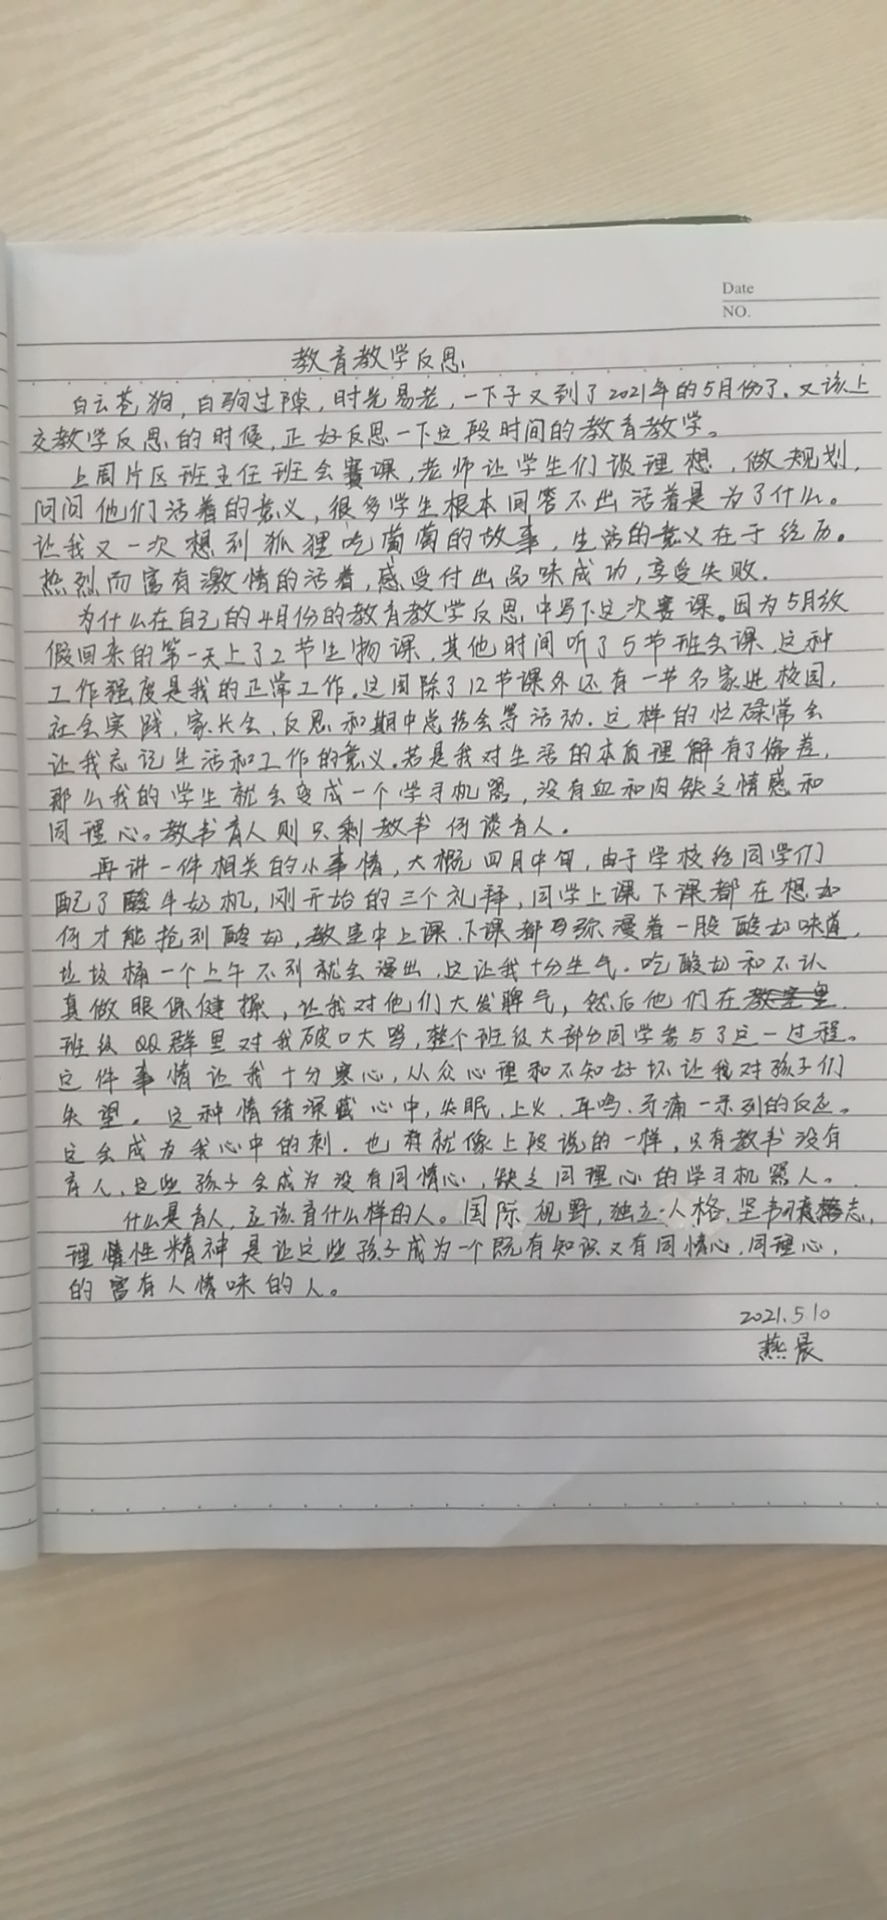 Date
NO.
教育教学反思
白云苍狗，白驹过隙，时光易老，一下子又到了2021年的5月份了。又该上
交教学反思的时候，正好反思一下这段时间的教育教学。
上周片区班主任班会赛课，老师让学生们谈理想，做规划，
问问他们活着的意义，很多学生根本回答不出活着是为了什么。
让我又一次想到狐狸吃葡萄的故事，生活的意义在于经历。
热烈而富有激情的活着，感受付出品味成功，享受失败.
为什么在自己的4月份的教育教学反思中写下这次赛课。因为5月放
假回来的第一天上了2节生物课，其他时间听了5节班会课，这种
工作强度是我的正常工作。这周除了12节课外还有一节名家进校园，
社会实践，家长会，反思和期中总结会等活动. 这样的忙碌常会
让我忘记生活和工作的意义。若是我对生活的本质理解有了偏差，
那么我的学生就会变成一个学习机器，没有血和肉缺乏情感和
同理心。教书育人则只剩教书何谈育人。
再讲一件相关的小事情，大概四月中旬，由于学校给同学们
配了酸牛奶机，刚开始的三个礼拜，同学上课下课都在想如
何才能抢到酸奶，教室中上课、下课都弥漫着一股酸奶味道，
垃圾桶一个上午不到就会漫出，这让我十分生气。吃酸奶和不认
真做眼保健操，让我对他们大发脾气，然后他们在
班级QQ群里对我破口大骂，整个班级大部分同学参与了这一过程。
这件事情让我十分寒心，从众心理和不知好坏让我对孩子们
失望。这种情绪深藏心中，失眠、上火、耳鸣、牙痛一系列的反应。
这会成为我心中的刺. 也就像上段说的一样，只有教书没有
育人，这些孩子会成为没有同情心，缺乏同理心的学习机器人。
什么是育人，应该育什么样的人。国际视野，独立人格，坚韧志，
理性精神是让这些孩子成为一个既有知识又有同情心，同理心，
的富有人情味的人。
2021.5.10
燕晨